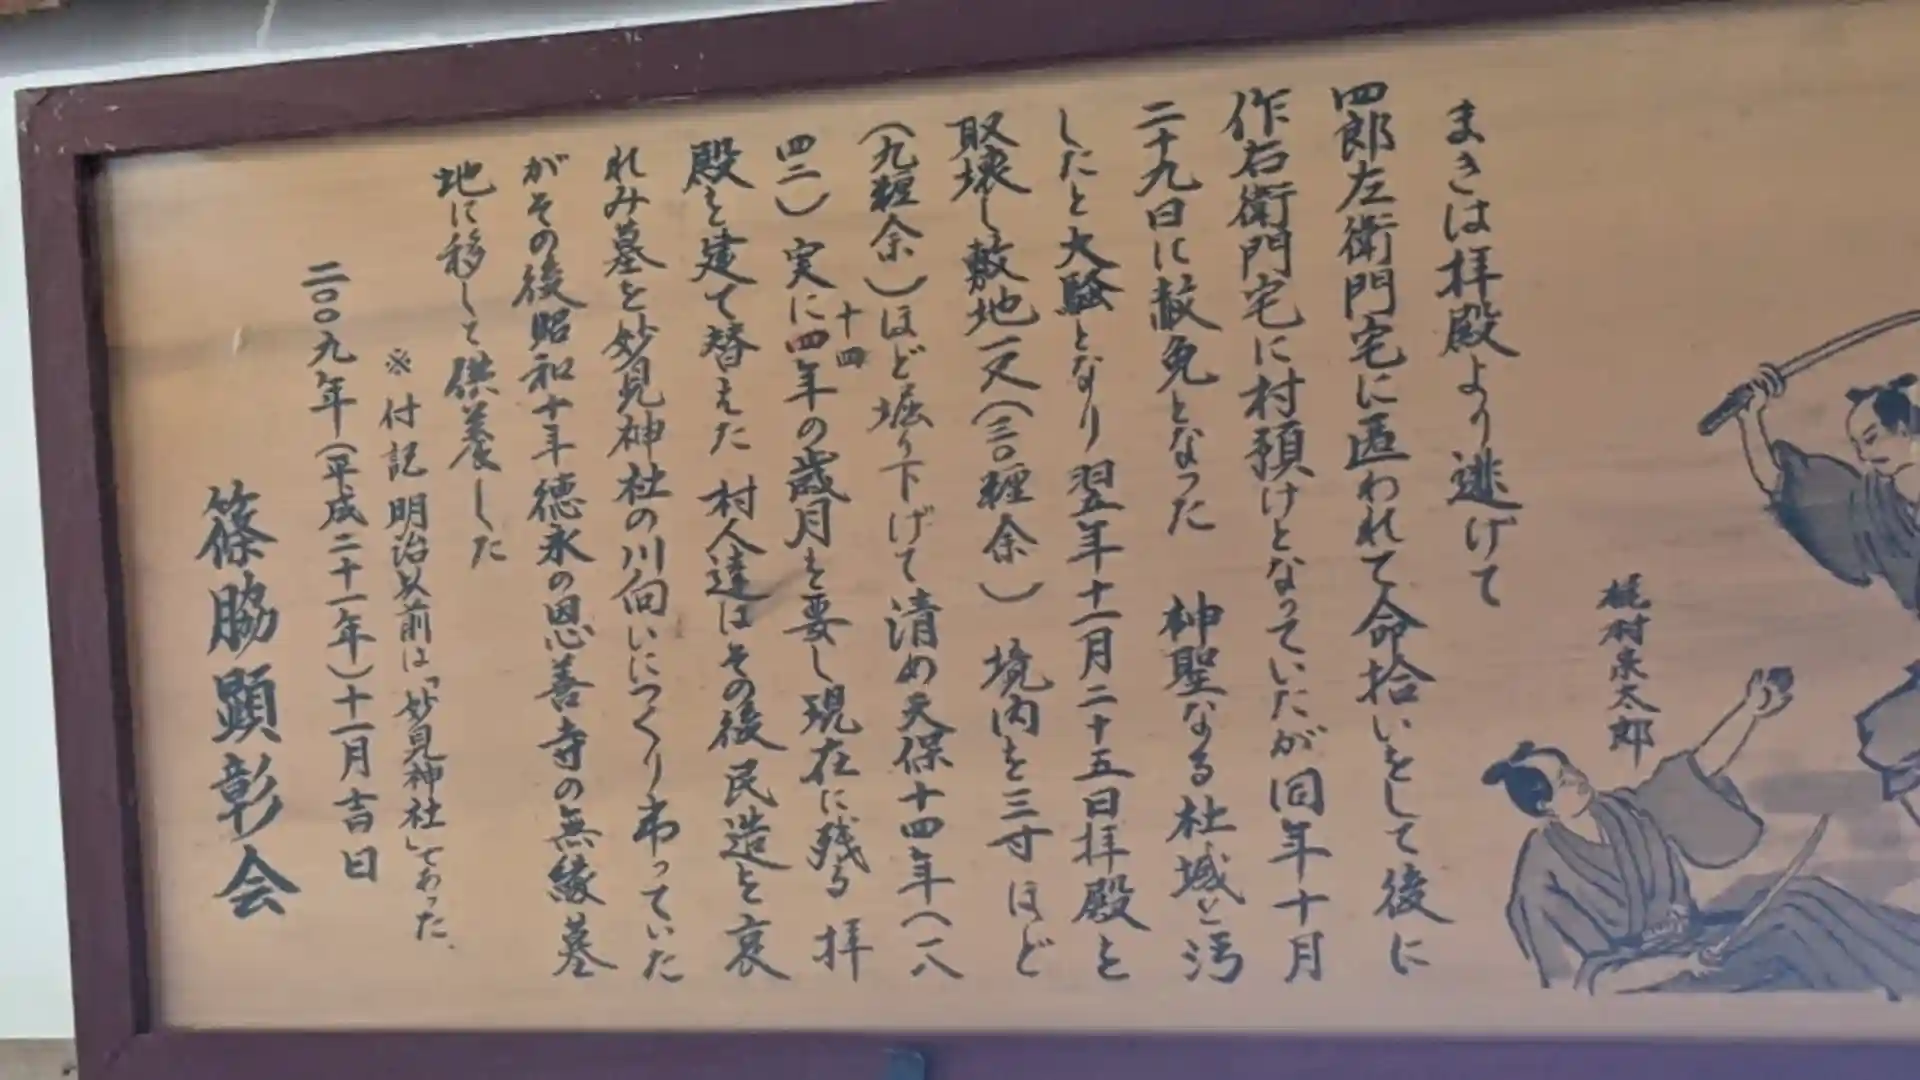 まきは拝殿より逃げて
四郎左衛門宅に匿われて命拾いをして後に
作右衛門宅に村預けとなっていたが同年十月
二十九日に赦免となった 神聖なる社域を汚
したと大騒となり翌年十一月二十五日拝殿を
取壊し敷地一尺(三〇糎余)境内を三寸ほど
(九糎余)ほど堀り下げて清め天保十四年(一八
四三)実に四年の歳月を要し現在に残る 拝
十四
殿を建て替えた 村人達はその後民造を哀
れみ墓を妙見神社の川向いにつくり弔っていた
がその後昭和十年徳永の恩善寺の無縁墓
地に移して供養した
※ 付記 明治以前は「妙見神社」であった、
二〇〇九年(平成二十一年)十一月吉日
篠脇顕彰会
村泉太郎